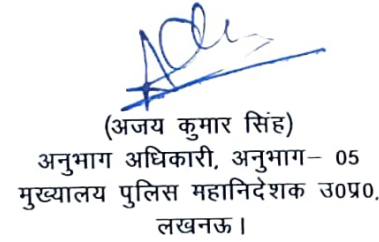 (अजय कुमार सिंह)
अनुभाग अधिकारी, अनुभाग- 05
मुख्यालय पुलिस महानिदेशक उ०प्र०,
लखनऊ।